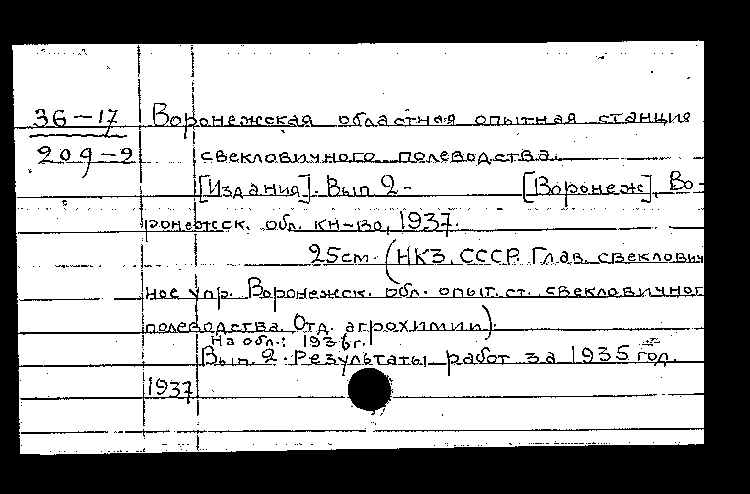 36-17 Воронежская областная опытная станция
209-2 свекловичного полеводства.
[Издания]. Вып 2- [Воронеж], Во-
ронежск. обл. кн-во, 1937.
25см. (НКЗ. СССР. Глав. свеклович
ное упр. Воронежск. обл. опыт. ст. свекловичног
полеводства. Отд. агрохимии).
На обл.: 1936г.
Вып. 2. Результаты работ за 1935 год.
1937